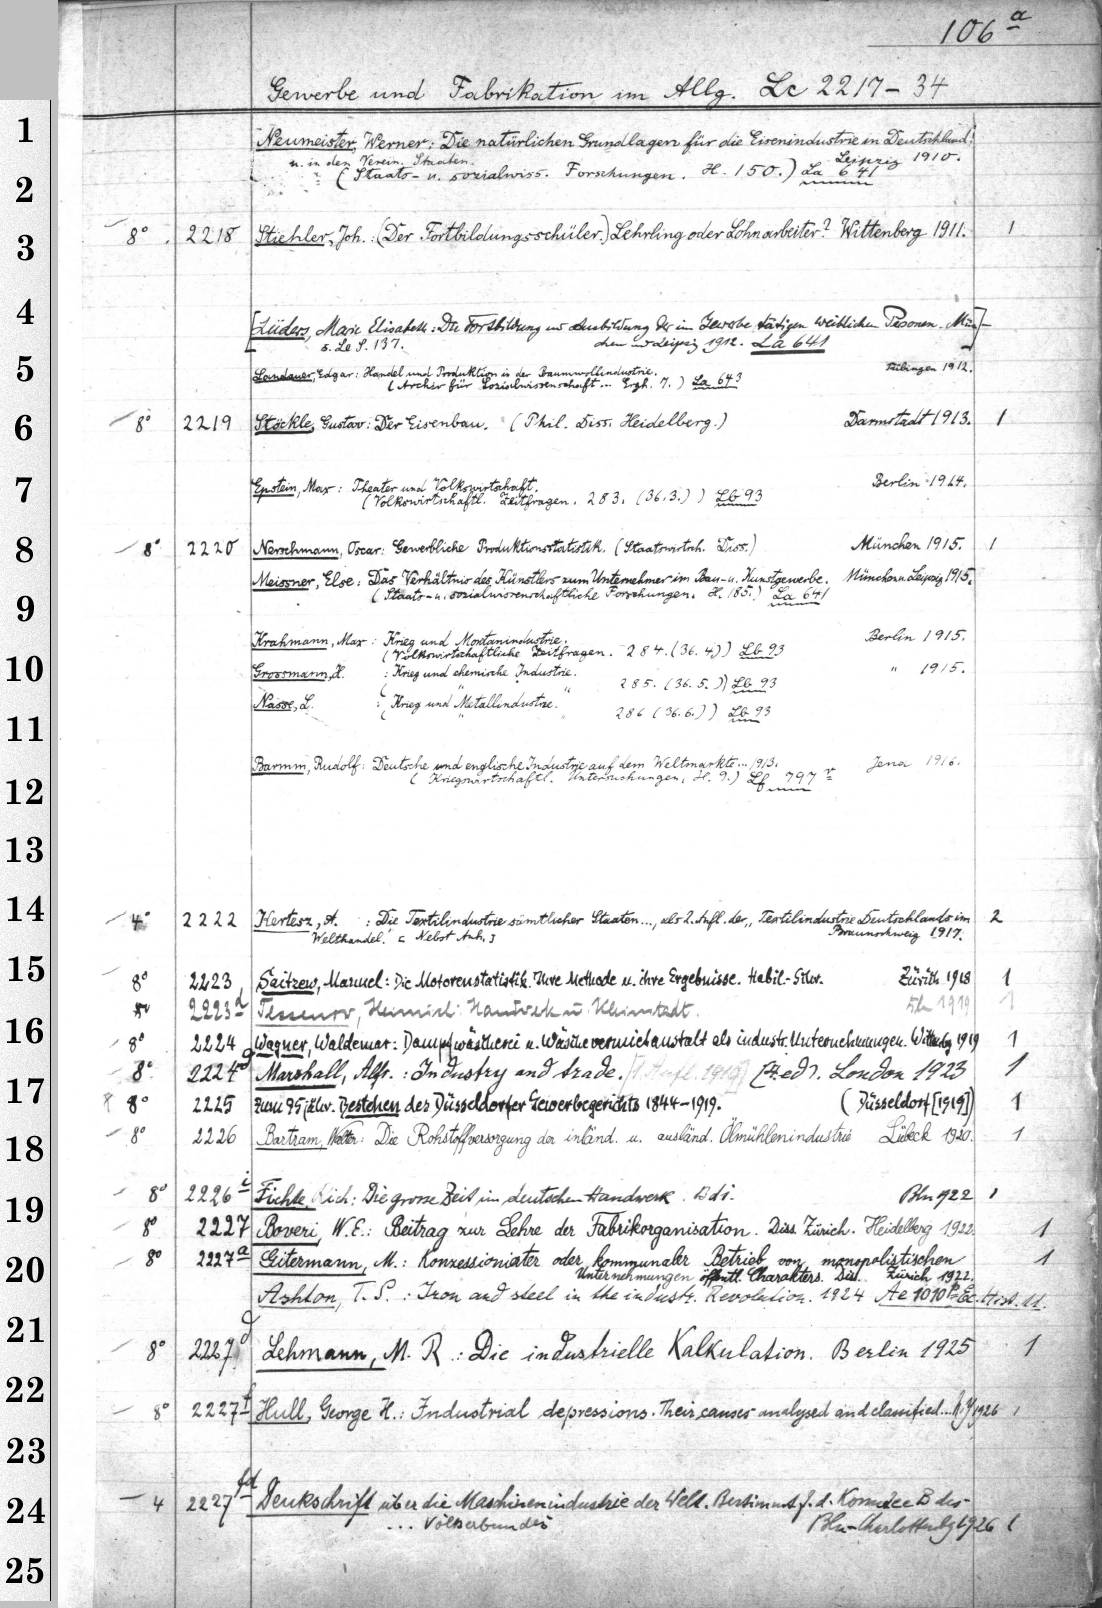 106 a
Gewerbe und Fabrikation im Allg. Lc 2217-34
1
Neumeister, Werner: Die natürlichen Grundlagen für die Eisenindustrie in Deutschland
u. in den Verein. Staaten. Leipzig 1910.
(Staats- u. sozialwiss. Forschungen. H. 150.) La 641
2
8° 2218 Stiehler, Joh.: (Der Fortbildungsschüler.) Lehrling oder Lohnarbeiter? Wittenberg 1911. 1
3
4
[Lüders, Marie Elisabeth: Die Fortbildung und Ausbildung der im Gewerbe tätigen weiblichen Personen. Mün-]
s. Le S. 137. chen und Leipzig 1912. La 641
5
Landauer, Edgar: Handel und Produktion in der Baumwollindustrie. Tübingen 1912.
(Archiv für Sozialwissenschaft... Ergh. 7.) La 643
6
8° 2219 Stöckle, Gustav: Der Eisenbau. (Phil. Diss. Heidelberg.) Darmstadt 1913. 1
7
Epstein, Max: Theater und Volkswirtschaft. Berlin 1914.
(Volkswirtschaftl. Zeitfragen. 283. (36.3.)) Lb 93
8
8° 2220 Nerschmann, Oscar: Gewerbliche Produktionsstatistik. (Staatswirtsch. Diss.) München 1915. 1
Meissner, Else: Das Verhältnis des Künstlers zum Unternehmer im Bau- u. Kunstgewerbe. München u. Leipzig 1915.
(Staats- u. sozialwissenschaftliche Forschungen. H. 185.) La 641
9
Krahmann, Max: Krieg und Montanindustrie. Berlin 1915.
(Volkswirtschaftliche Zeitfragen. 284. (36.4)) Lb 93
10
Grossmann, H. : Krieg und chemische Industrie. " 1915.
( " " 285. (36.5.)) Lb 93
Nasse, L. : Krieg und Metallindustrie.
( " " 286 (36.6.)) Lb 93
11
Barmm, Rudolf: Deutsche und englische Industrie auf dem Weltmarkte... 1913. Jena 1916.
(Kriegswirtschaftl. Untersuchungen, H. 9.) Lf 797 r
12
13
14
4° 2222 Kertesz, A. : Die Textilindustrie sämtlicher Staaten..., als 2. Aufl. der „Textilindustrie Deutschlands im 2
Welthandel." [Nebst Anh.] Braunschweig 1917.
15
8° 2223 Saitzew, Manuel: Die Motorenstatistik. Ihre Methode u. ihre Ergebnisse. Habil.-Schr. Zürich 1918 1
2223 a Tessenow, Heinrich: Handwerk u. Kleinstadt. Bln 1919 1
16
8° 2224 Wagner, Waldemar: Dampfwäscherei u. Wäschevermietanstalt als industr. Unternehmungen. Wittenbg 1919 1
8° 2224 g Marshall, Alfr.: Industry and trade. [1. Aufl. 1919] (4. ed). London 1923 1
17
8° 2225 Zum 75 jähr. Bestehen des Düsseldorfer Gewerbegerichts 1844-1919. (Düsseldorf [1919]) 1
8° 2226 Bartram, Walter: Die Rohstoffversorgung der inländ. u. ausländ. Ölmühlenindustrie Lübeck 1920. 1
18
8° 2226 i Fichte, Rich: Die grosse Zeit im deutschen Handwerk. Bd 1. Bln 922 1
19
8° 2227 Boveri, W. E.: Beitrag zur Lehre der Fabrikorganisation. Diss. Zürich. Heidelberg 1922. 1
8° 2227 a Gitermann, M.: Konzessionierter oder kommunaler Betrieb von monopolistischen 1
20
Unternehmungen öffentl. Charakters. Diss. Zürich 1922.
Ashton, T. S.: Iron and steel in the industr. Revolution. 1924 Ae 1010 Ec. Hist. 11.
21
8° 2227 d Lehmann, M. R.: Die industrielle Kalkulation. Berlin 1925 1
22
8° 2227 f Hull, George H.: Industrial depressions. Their causes analysed and classified... N.Y. 1926 1
23
4 2227 fd Denkschrift über die Maschinenindustrie der Welt. Bestimmt f. d. Komitee B des
24
... Völkerbundes Bln-Charlottenbg 1926 1
25